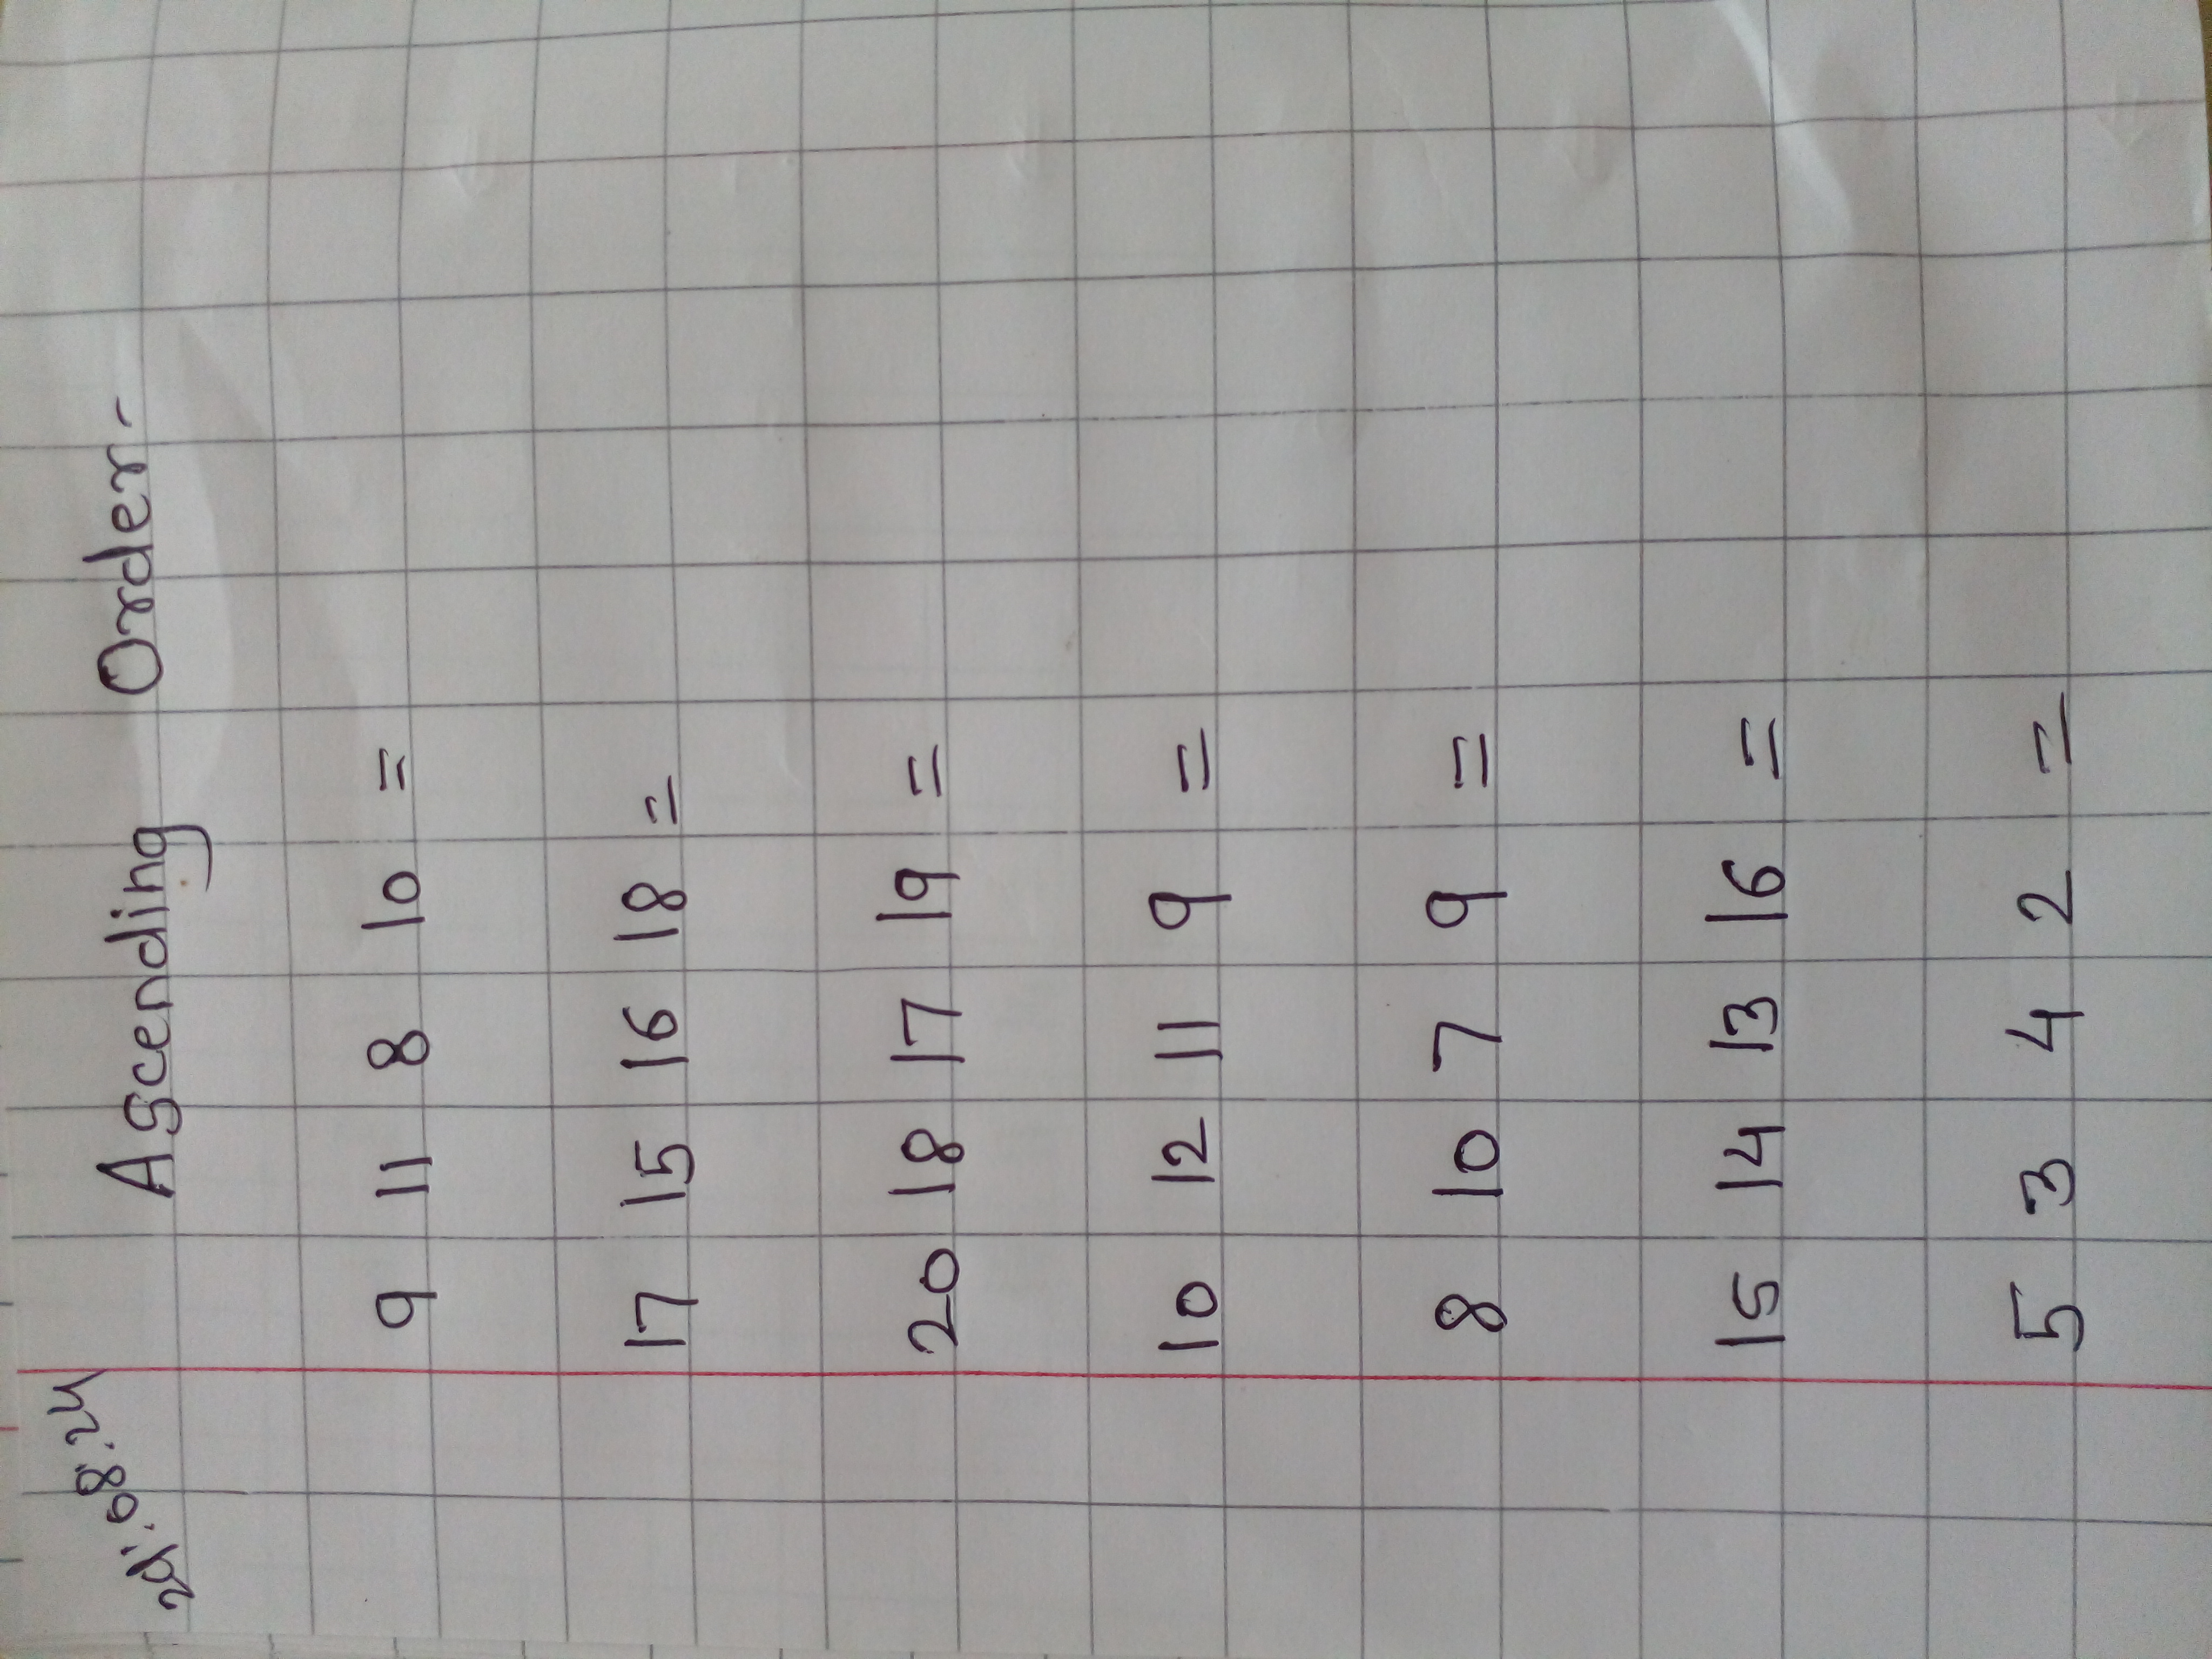 Ascending Order
9 11 8 10 =
17 15 16 18 =
20 18 17 19 =
10 12 11 9 =
8 10 7 9 =
15 14 13 16 =
5 3 4 2 =